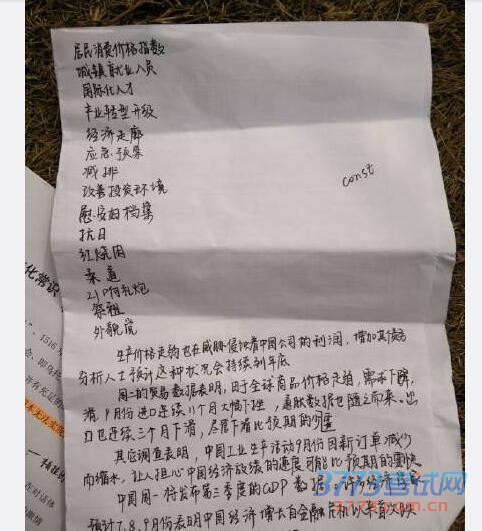 居民消费价格指数
城镇就业人员
国际化人才
产业转型升级
经济走廊
应急预案
减排
改善投资环境
慰安妇档案
抗日
红烧肉
柔道
21响礼炮
祭祖
外貌党
const
生产价格走弱也在威胁侵蚀着中国公司的利润，增加其债务
分析人士预计这种状况会持续到年底
周二的贸易数据表明，因于全球商品价格走弱，需求下降
滑，9月份进口连续11个月大幅下挫，通缩数据也随之而来。出
口也连续三个月下滑，尽管下滑比预期的
其它调查表明，中国工业生产活动9月份因新订单减少
而缩水，让人担心中国经济放缓的速度可能比预期的要快
中国周一将发布第三季度的GDP数据，许多经济
预计7、8、9月份表明中国经济增长自全融危机以来首次
化常识
1516
3773考试网
3773.com.cn